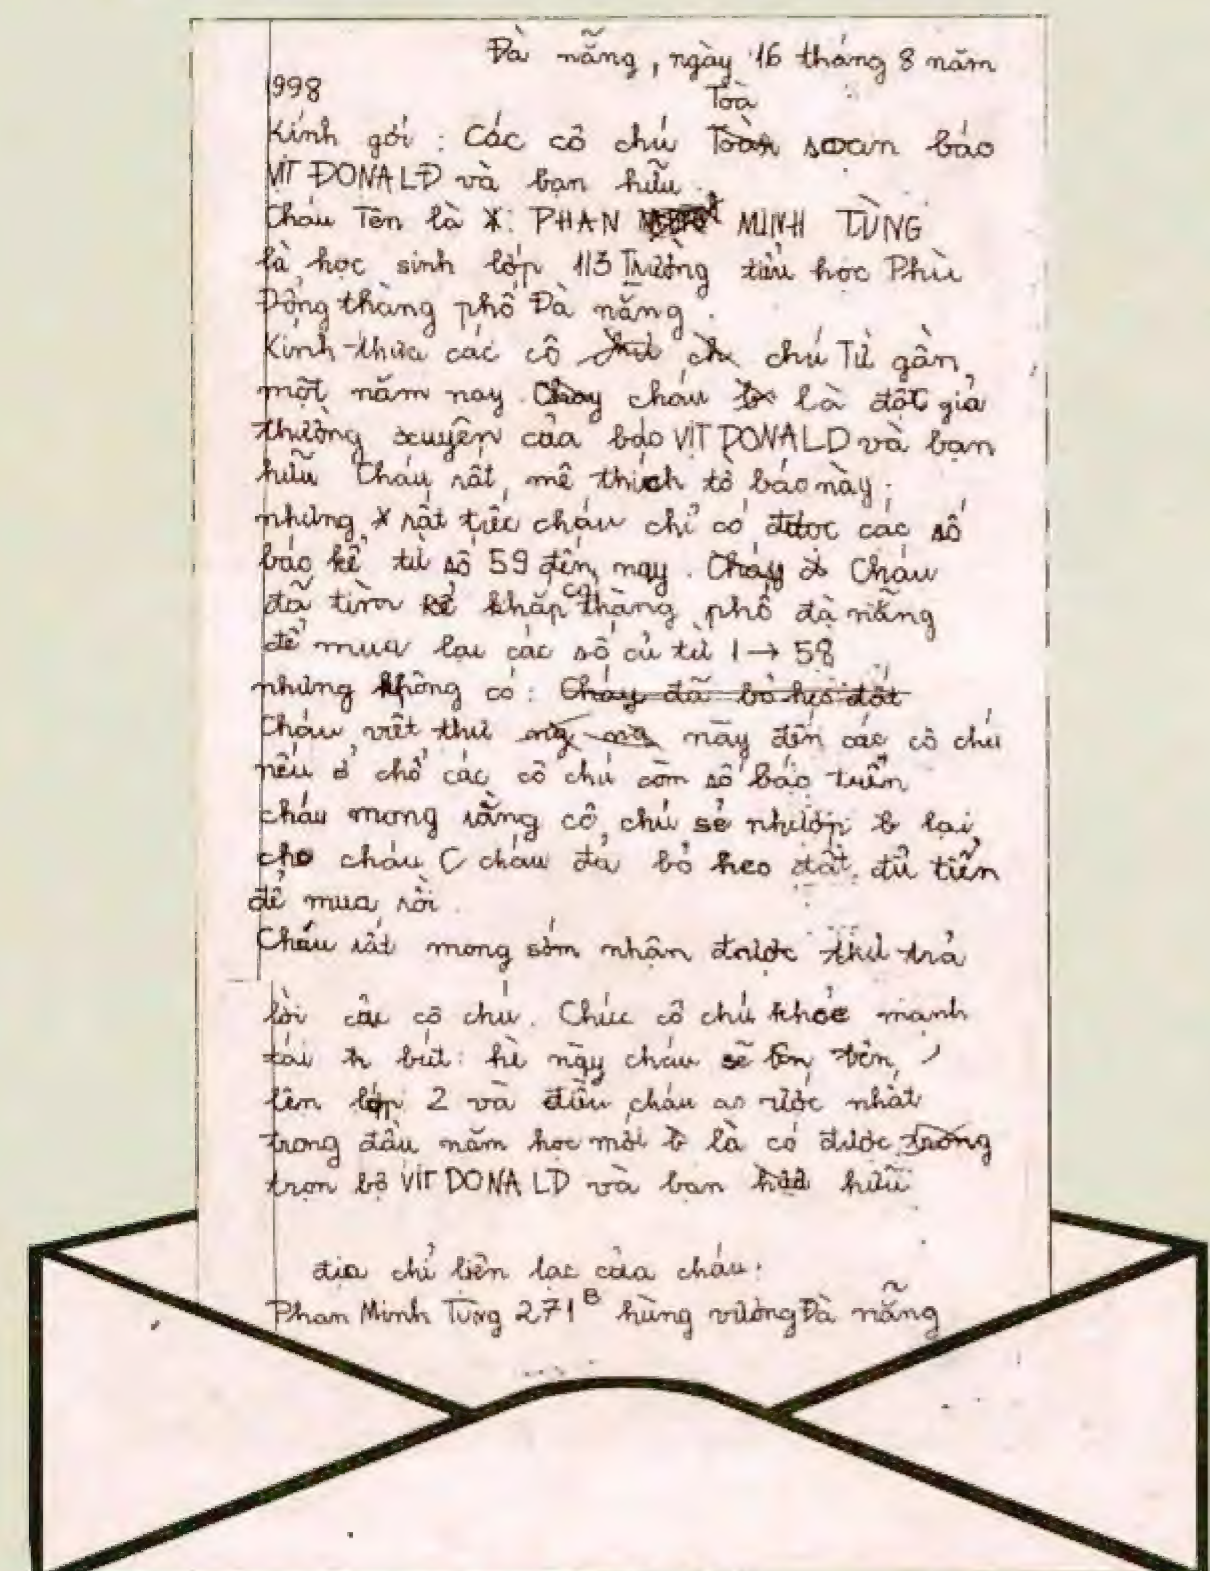 Đà nẵng, ngày 16 tháng 8 năm
1998
Toà
Kính gởi : Các cô chú Toàn soạn báo
VỊT ĐONALĐ và bạn hữu.
Cháu Tên là : PHAN MINH TÙNG
là học sinh lớp 1/3 Trường tiểu học Phù
Đổng thành phố Đà nẵng.
Kính thưa các cô chú Từ gần
một năm nay. Cháy cháu là đột giả
thường xuyên của báo VỊT DONALD và bạn
hữu Cháu rất mê thích tờ báo này;
nhưng rất tiếc cháu chỉ có được các số
báo kể từ số 59 đến nay. Cháy Cháu
đã tìm kể khắp cả thàng phố đà nẵng
để mua lại các số củ từ 1 → 58
nhưng không có : Cháy đã bỏ heo đất
Cháu viết thư này đến các cô chú
nếu ở chổ các cô chú còn số báo trên
cháu mong rằng cô chú sẻ nhượp lại
cho cháu ( cháu đả bỏ heo đất đủ tiền
để mua rồi.
Cháu rất mong sớm nhận được thư trả
lời các cô chú. Chúc cô chú khoẻ mạnh
tái bút : hè nầy cháu sẽ
lên lớp 2 và điều cháu ao ước nhất
trong đầu năm học mới là có được trong
trọn bộ VIT DONALD và bạn hữu
địa chỉ liên lạc của cháu:
Phan Minh Tùng 271B hùng vương Đà nẵng